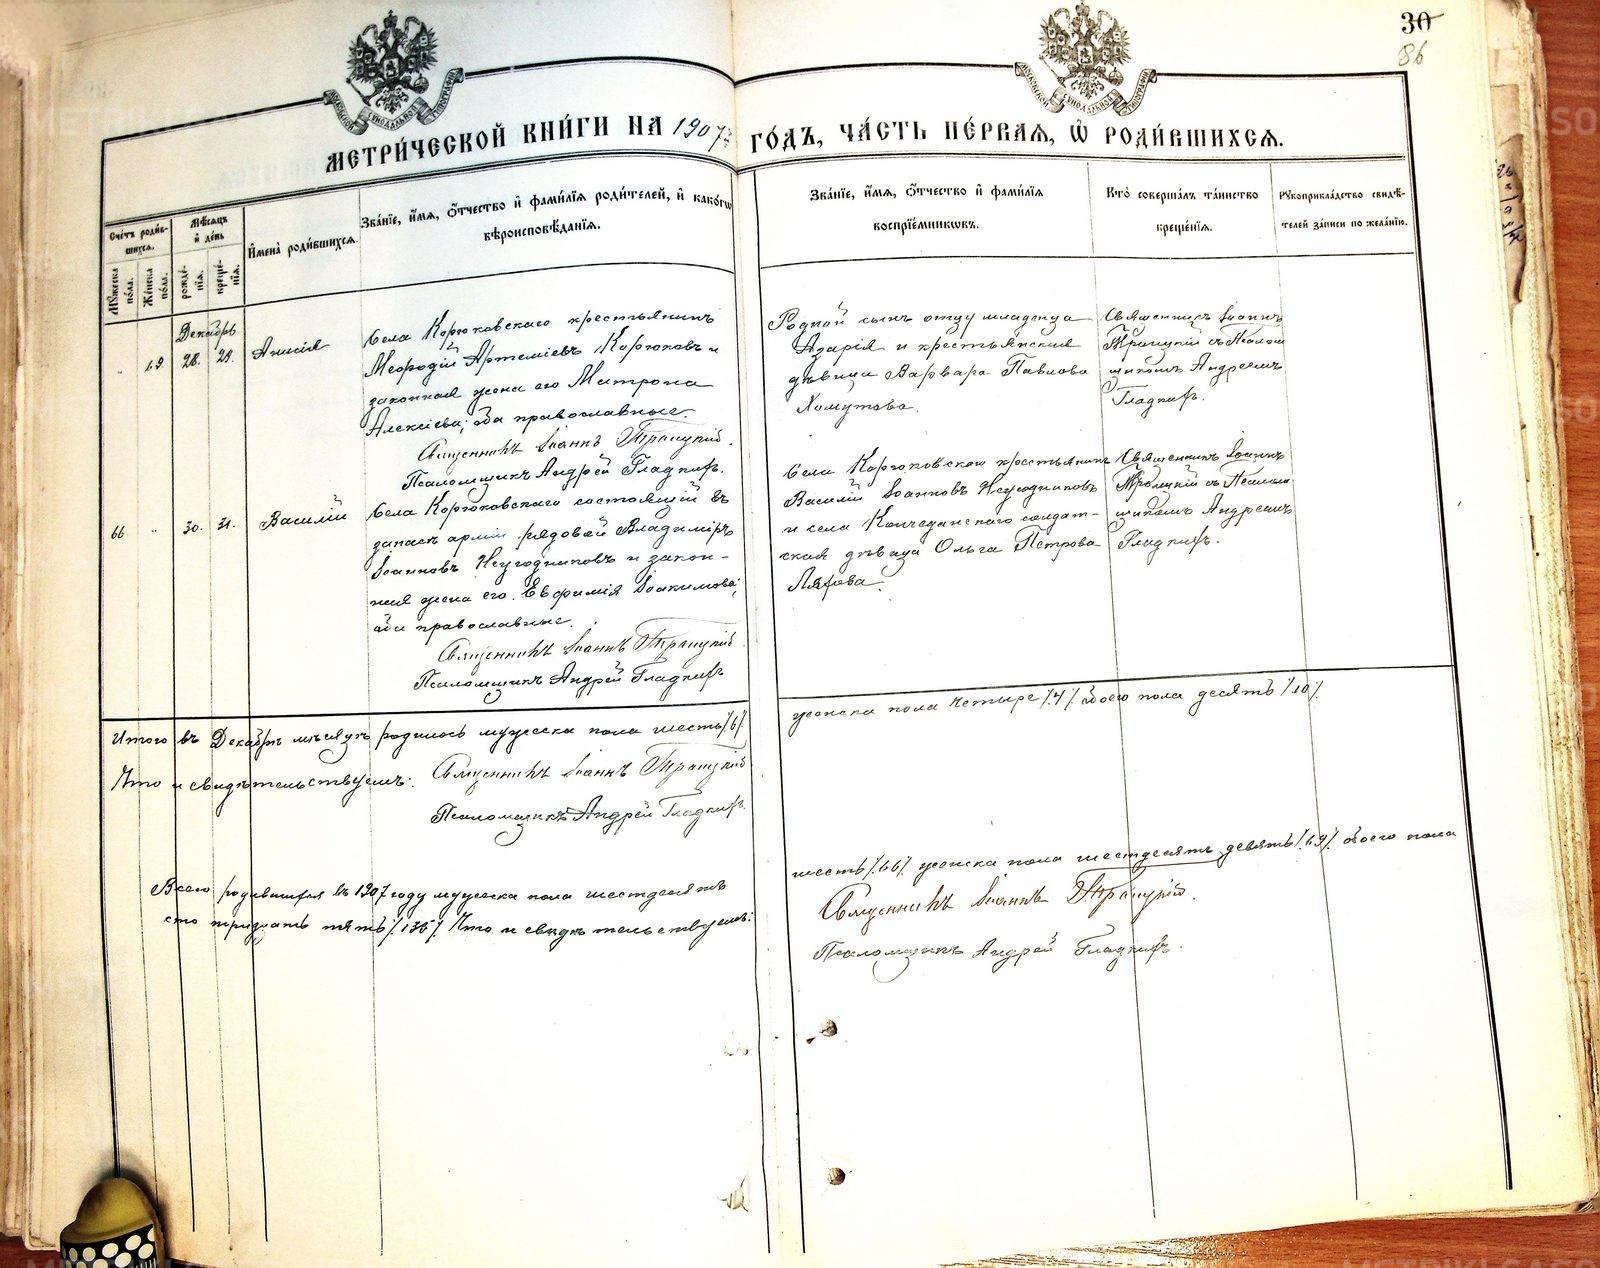 30
86
МОСКОВСКОЙ СѴНОДАЛЬНОЙ ТИПОГРАФІИ
МОСКОВСКОЙ СѴНОДАЛЬНОЙ ТИПОГРАФІИ
МЕТРИ́ЧЕСКОЙ КНИ́ГИ НА 1907й ГО́ДЪ, ЧА́СТЬ ПЕ́РВАЯ, Ѡ҆ РОДИ́ВШИХСЯ.
Сче́тъ роди́вшихся.
Му́жеска по́ла.
Же́нска по́ла.
Мѣ́сяцъ и҆ де́нь
рожде́нїя.
креще́нїя.
И҆мена̀ роди́вшихся.
Зва́нїе, и҆́мя, ѻ҆́тчество и҆ фами́лїѧ роди́телей, и҆ како́гѡ
вѣроисповѣ́данїя.
Зва́нїе, и҆́мя, ѻ҆́тчество и҆ фами́лїѧ
воспрїе́мникѡвъ.
Кто̀ соверша́лъ та́инство
креще́нїя.
Рꙋкоприкла́дство свидѣ́-
телей за́писи по жела́нїю.
Декабрь
„ 69. 28. 29. Анисія
Села Корюковскаго крестьянинъ
Меѳодій Артеміевъ Корюковъ и
законная жена его Матрона
Алексіева; оба православные.
Священникъ Іоаннъ Троицкій.
Псаломщикъ Андрей Гладкихъ.
Родной сынъ отцу младенца
Азарія и крестьянская
дѣвица Варвара Павлова
Хомутова.
Священникъ Іоаннъ
Троицкій съ Псалом
щикомъ Андреемъ
Гладкихъ.
66 „ 30. 31. Василій
Села Корюковскаго состоящій въ
запасѣ арміи рядовой Владиміръ
Іоанновъ Неугодниковъ и закон-
ная жена его Евфимія Іоакимова;
оба православные.
Священникъ Іоаннъ Троицкій
Псаломщикъ Андрей Гладкихъ
Села Корюковскаго крестьянинъ
Василій Іоанновъ Неугодниковъ
и села Колчеданскаго солдат-
ская дѣвица Ольга Петрова
Ляхова.
Священникъ Іоаннъ
Троицкій съ Псалом
щикомъ Андреемъ
Гладкихъ.
Итого въ Декабрѣ мѣсяцѣ родилось мужеска пола шесть /6/
женска пола четыре /4/ обоего пола десять /10/.
Что и свидѣтельствуемъ: Священникъ Іоаннъ Троицкій
Псаломщикъ Андрей Гладкихъ.
Всего родившихся въ 1907 году мужеска пола шестдесятъ
шесть /66/ женска пола шестдесятъ девять /69/. обоего пола
сто тридцать пять /135/ Что и свидѣтельствуемъ:
Священникъ Іоаннъ Троицкій.
Псаломщикъ Андрей Гладкихъ.